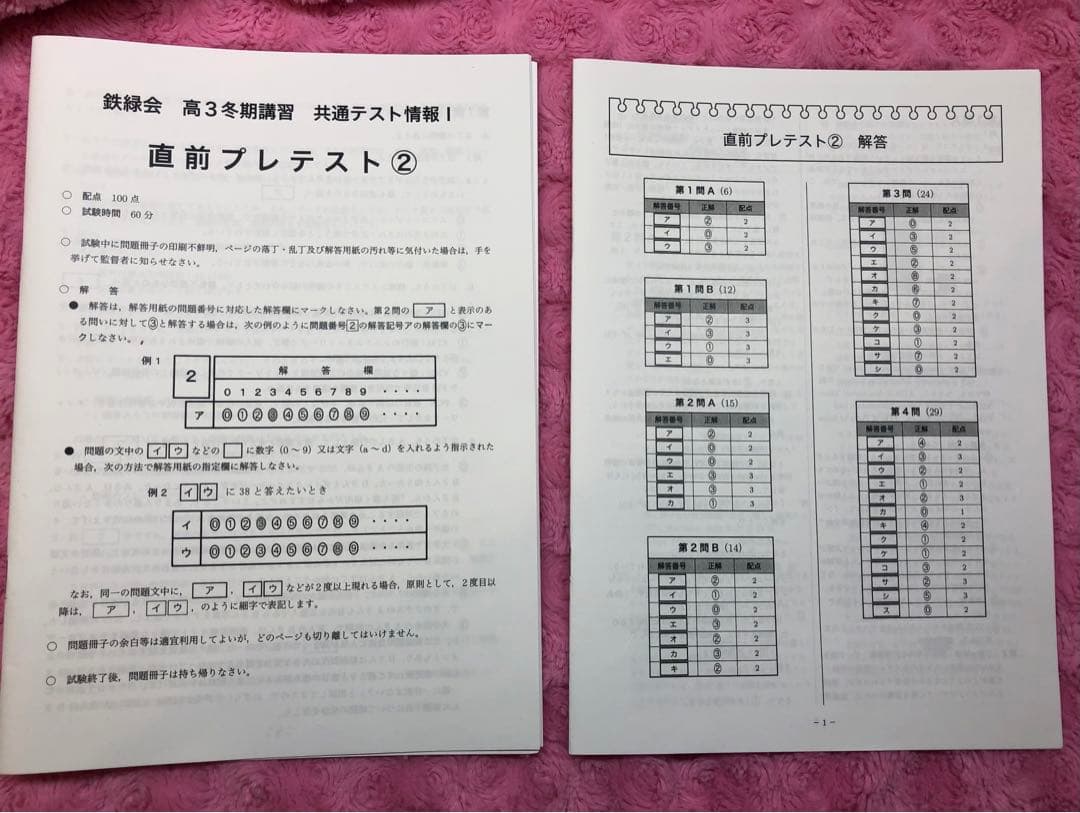 鉄緑会 高3冬期講習 共通テスト情報Ⅰ
直前プレテスト②
○ 配点 100点
○ 試験時間 60分
○ 試験中に問題冊子の印刷不鮮明,ページの落丁・乱丁及び解答用紙の汚れ等に気付いた場合は,手を
挙げて監督者に知らせなさい。
○ 解答
● 解答は,解答用紙の問題番号に対応した解答欄にマークしなさい。第2問の ア と表示のあ
る問いに対して③と解答する場合は,次の例のように問題番号2の解答記号アの解答欄の③にマー
クしなさい。
例1
2 解答欄
0 1 2 3 4 5 6 7 8 9 ・・・・
ア ⓪①②③④⑤⑥⑦⑧⑨ ・・・・
● 問題の文中の イ ウ などの □ に数字(0~9)又は文字(a~d)を入れるよう指示された
場合,次の方法で解答用紙の指定欄に解答しなさい。
例2 イ ウ に38と答えたいとき
イ ⓪①②③④⑤⑥⑦⑧⑨ ・・・・
ウ ⓪①②③④⑤⑥⑦⑧⑨ ・・・・
なお,同一の問題文中に, ア , イ ウ などが2度以上現れる場合,原則として,2度目以
降は, ア , イ ウ ,のように細字で表記します。
○ 問題冊子の余白等は適宜利用してよいが,どのページも切り離してはいけません。
○ 試験終了後,問題冊子は持ち帰りなさい。
直前プレテスト② 解答
第1問A(6)
解答番号 正解 配点
ア ② 2
イ ⓪ 2
ウ ③ 2
第1問B(12)
解答番号 正解 配点
ア ② 3
イ ③ 3
ウ ① 3
エ ⓪ 3
第2問A(15)
解答番号 正解 配点
ア ② 2
イ ⓪ 2
ウ ⓪ 2
エ ③ 3
オ ③ 3
カ ① 3
第2問B(14)
解答番号 正解 配点
ア ② 2
イ ① 2
ウ ⓪ 2
エ ③ 2
オ ② 2
カ ③ 2
キ ② 2
第3問(24)
解答番号 正解 配点
ア ⓪ 2
イ ③ 2
ウ ⑤ 2
エ ② 2
オ ⑧ 2
カ ⑥ 2
キ ⑦ 2
ク ⓪ 2
ケ ③ 2
コ ① 2
サ ⑦ 2
シ ⓪ 2
第4問(29)
解答番号 正解 配点
ア ④ 2
イ ③ 3
ウ ② 2
エ ① 2
オ ② 3
カ ⓪ 1
キ ④ 2
ク ① 2
ケ ① 2
コ ③ 2
サ ② 3
シ ⑤ 3
ス ⓪ 2
-1-